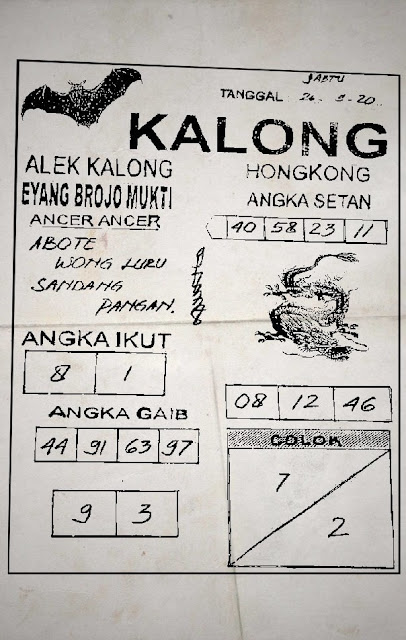 SABTU
TANGGAL 24-5-20
KALONG
ALEK KALONG
EYANG BROJO MUKTI
HONGKONG
ANGKA SETAN
40 58 23 11
ANCER ANCER
ABOTE
WONG LURU
SANDANG
PANGAN.
ANGKA IKUT
8 1
ANGKA GAIB
44 91 63 97
9 3
08 12 46
COLOK
7
2